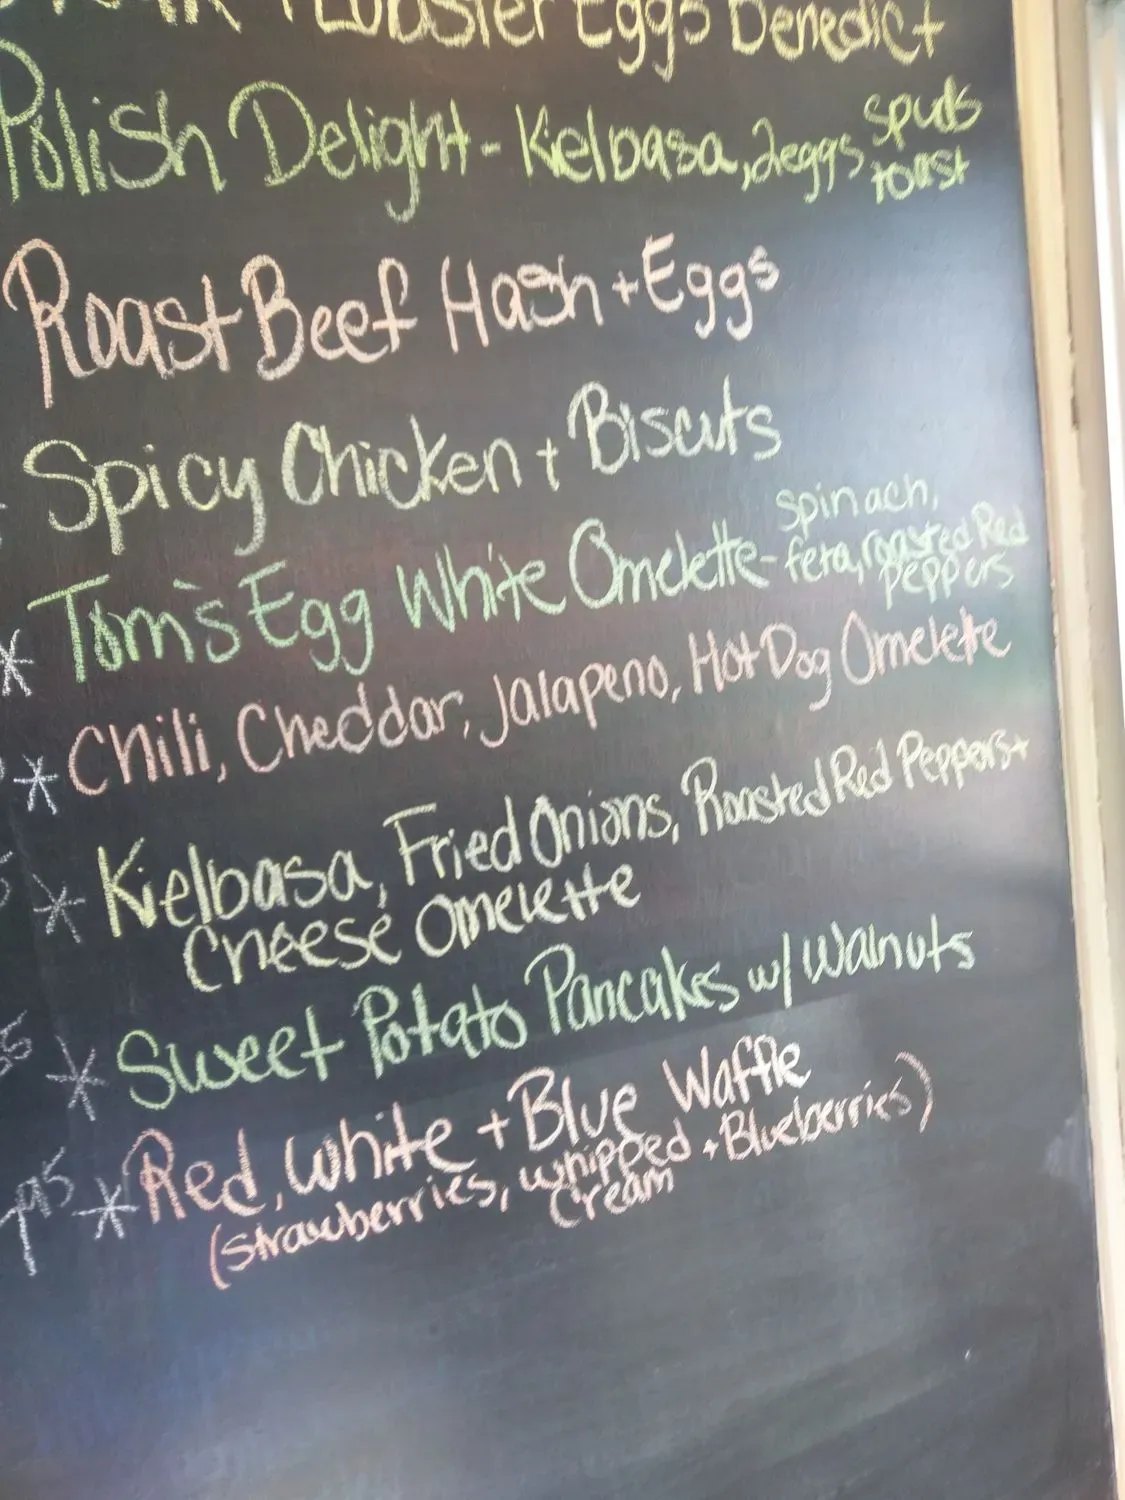 + Lobster Eggs Benedict
Polish Delight - Kielbasa, 2eggs, spuds
toast
Roast Beef Hash + Eggs
Spicy Chicken + Biscuts
Tom's Egg White Omelette - spinach,
feta, roasted Red
peppers
* Chili, Cheddar, Jalapeno, Hot Dog Omelette
* Kielbasa, Fried Onions, Roasted Red Peppers +
Cheese Omelette
* Sweet Potato Pancakes w/ Walnuts
* Red, White + Blue Waffle
(strawberries, whipped + Blueberries)
cream